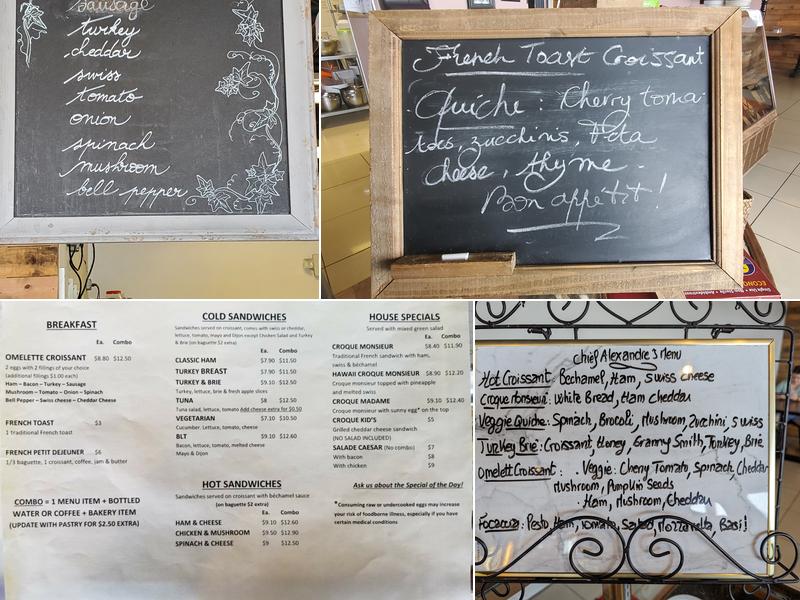 sausage
turkey
cheddar
swiss
tomato
onion
spinach
mushroom
bell pepper
French Toast Croissant
Quiche : Cherry toma
toes, zucchinis, Feta
cheese, thyme.
Bon appétit !
BREAKFAST
Ea. Combo
OMELETTE CROISSANT $8.80 $12.50
2 eggs with 2 fillings of your choice
(additional fillings $1.00 each)
Ham – Bacon – Turkey – Sausage
Mushroom – Tomato – Onion – Spinach
Bell Pepper – Swiss cheese – Cheddar Cheese
FRENCH TOAST $3
1 traditional French toast
FRENCH PETIT DEJEUNER $6
1/3 baguette, 1 croissant, coffee, jam & butter
COMBO = 1 MENU ITEM + BOTTLED
WATER OR COFFEE + BAKERY ITEM
(UPDATE WITH PASTRY FOR $2.50 EXTRA)
COLD SANDWICHES
Sandwiches served on croissant, comes with swiss or cheddar,
lettuce, tomato, mayo and Dijon except Chicken Salad and Turkey
& Brie (on baguette $2 extra)
Ea. Combo
CLASSIC HAM $7.90 $11.50
TURKEY BREAST $7.90 $11.50
TURKEY & BRIE $9.10 $12.50
Turkey, lettuce, brie & fresh apple slices
TUNA $8 $12.50
Tuna salad, lettuce, tomato Add cheese extra for $0.50
VEGETARIAN $7.10 $10.50
Cucumber, Lettuce, tomato, cheese
BLT $9.10 $12.60
Bacon, lettuce, tomato, melted cheese
Mayo & Dijon
HOT SANDWICHES
Sandwiches served on croissant with béchamel sauce
(on baguette $2 extra)
HAM & CHEESE $9.10 $12.60
CHICKEN & MUSHROOM $9.50 $12.90
SPINACH & CHEESE $9 $12.50
HOUSE SPECIALS
Served with mixed green salad
Ea. Combo
CROQUE MONSIEUR $8.40 $11.90
Traditional French sandwich with ham,
swiss & béchamel
HAWAII CROQUE MONSIEUR $8.90 $12.20
Croque monsieur topped with pineapple
and melted swiss
CROQUE MADAME $9.10 $12.40
Croque monsieur with sunny egg* on the top
CROQUE KID'S $5
Grilled cheddar cheese sandwich
(NO SALAD INCLUDED)
SALADE CAESAR (No combo) $7
With bacon $8
With chicken $9
Ask us about the Special of the Day!
*Consuming raw or undercooked eggs may increase
your risk of foodborne illness, especially if you have
certain medical conditions
chief Alexandre's Menu
Hot Croissant: Bechamel, Ham, Swiss cheese
Croque Monsieur: White Bread, Ham cheddar
Veggie Quiche: Spinach, Brocoli, Mushroom, Zucchini, Swiss
Turkey Brie: Croissant, Honey, Granny Smith, Turkey, Brie
Omelett Croissant: . Veggie: Cherry Tomato, Spinach, Cheddar
Mushroom, Pumpkin Seeds
. Ham, Mushroom, Cheddar
Focaccia: Pesto, Ham, Tomato, Salad, Mozzarella, Basil